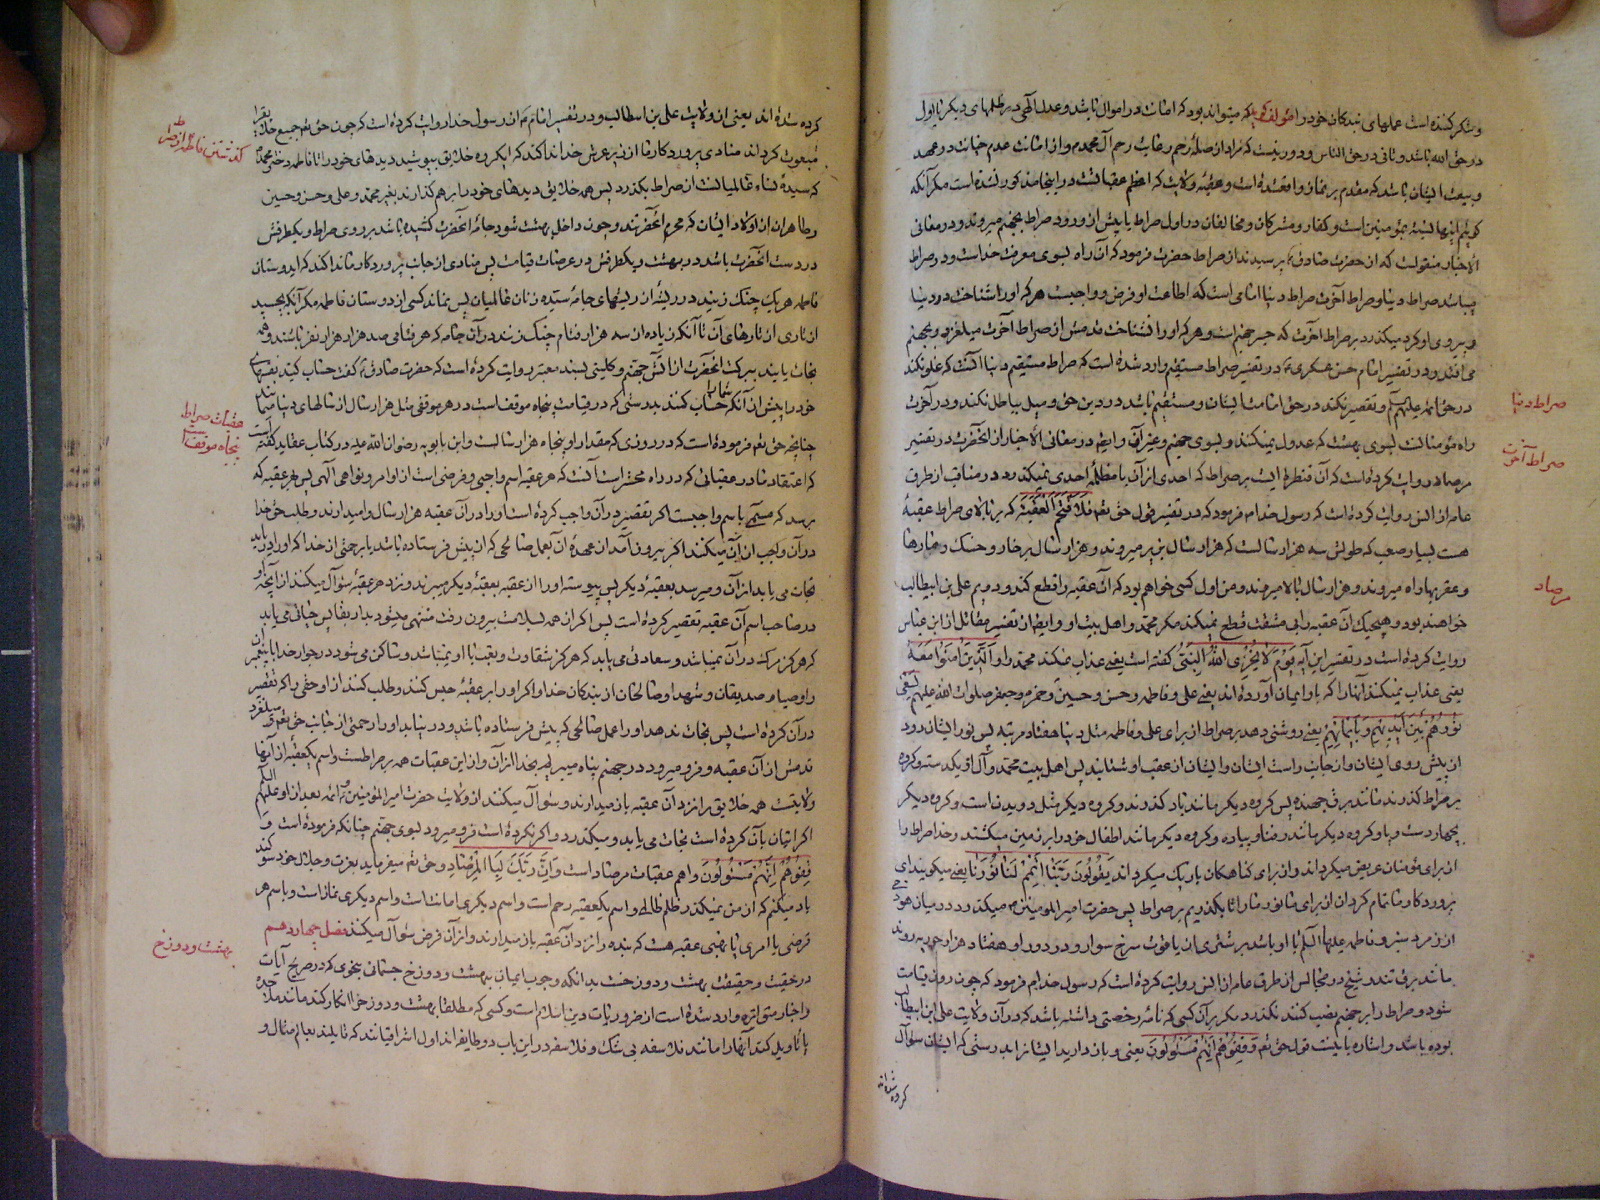 و شکر کننده است عملهای بندکان خود را مؤلف کوید که میتواند بود که امانت در اموال باشد و عدل الهی در ظلمهای دیکر یا اول
در حق الله باشد و ثانی در حق الناس و دور نیست که مراد از صلهٔ رحم رعایت رحم آل محمد و از امانت عدم خیانت در عهد
و بیعت ایشان باشد که مقدم بر نماز واقع شده است و عقبه ولایت که اعظم عقباتست در اینجا مذکور نشده است مکر آنکه
کوئیم اینها نسبت بمؤمنین است و کفار و مشرکان و مخالفان در اول صراط یا پیش از ورود صراط بجهنم میروند و در معانی
الاخبار منقولست که از حضرت صادق ع پرسیدند از صراط حضرت فرمود که آن راه بسوی معرفت خداست و دو صراط
میباشد صراط دنیا و صراط آخرت صراط دنیا امامی است که اطاعت او فرض و واجبست هر که او را شناخت در دنیا
و پیروی او کرد میکذرد بر صراط آخرت که جسر جهنم است و هر که او را نشناخت قدمش از صراط آخرت میلغزد و بجهنم
می افتد و در تفسیر امام حسن عسکری ع در تفسیر صراط مستقیم وارد شده است که صراط مستقیم دنیا آنست که غلو نکند
در حق ائمه علیهم السلم و تقصیر نکند در حق امامت ایشان و مستقیم باشد در دین حق و میل بباطل نکند و در آخرت
راه مؤمنانست بسوی بهشت که عدول نمیکنند و بسوی جهنم و غیر آن و ایضا در معانی الاخبار از آنحضرت در تفسیر
مرصاد روایت کرده است که آن قنطرهٔ ایست بر صراط که احدی از آن با مظلمه احدی نمیکذرد و در مناقب از طرق
عامه از انس روایت کرده است که رسول خدا ص فرمود که در تفسیر قول حق تعم فَلَا اقْتَحَمَ الْعَقَبَةَ که بر بالای صراط عقبهٔ
هست بسیار صعب که طولش سه هزار سالست که هزار سال بزیر میروند و هزار سال بر خار و خسک و مارها
و عقربها راه میروند و هزار سال بالا میروند و من اول کسی خواهم بود که آن عقبه را قطع کند و دویم علی بن ابیطالب
خواهند بود و هیچیک آن عقبه را بی مشقت قطع نمیکند مکر محمد و اهل بیت او و ایضا از تفسیر مقاتل از ابن عباس
روایت کرده است در تفسیر این آیه يَوْمَ لَا يُخْزِي اللَّهُ النَّبِيَّ کفته است یعنی عذاب نمیکند محمد را وَ الَّذِينَ آمَنُوا مَعَهُ
یعنی عذاب نمیکند آنها را که با او ایمان آورده اند یعنی علی و فاطمه و حسن و حسین و حمزه و جعفر صلوات الله علیهم يَسْعَى
نُورُهُمْ بَيْنَ أَيْدِيهِمْ وَ بِأَيْمَانِهِمْ یعنی روشنی دهد بر صراط از برای علی و فاطمه مثل دنیا هفتاد مرتبه پس نور ایشان رود
از پیش روی ایشان و از جانب راست ایشان و ایشان از عقب او شتابند پس اهل بیت محمد و آل او یکدسته و کروه
بر صراط کذرند مانند برق جهنده پس کروه دیکر مانند باد کذرند و کروه دیکر مثل دویدن اسب و کروه دیکر
بچهار دست و پا و کروه دیکر مانند رفتار پیاده و کروه دیکر مانند اطفال خود را بر زمین میکشند و خدا صراط را
از برای مؤمنان عریض میکرداند و از برای کناهکاران باریک میکرداند يَقُولُونَ رَبَّنَا أَتْمِمْ لَنَا نُورَنَا یعنی میکویند ای
پروردکار ما تمام کردان از برای ما نور ما را تا بکذریم بر صراط پس حضرت امیر المؤمنین ص میکذرد در میان هودجی
از زمرد سبز و فاطمه علیها السلم با او باشد بر شتری از یاقوت سرخ سوار و در دور او هفتاد هزار حوریه روند
مانند برق تند و شیخ در مجالس از طرق عامه از انس روایت کرده است که رسول خدا ص فرمود که چون روز قیامت
شود و صراط را بر جهنم نصب کنند نکذرد مکر بر آن کسی که نامهٔ رخصتی داشته باشد که در آن ولایت علی ابن ابیطالب
بوده باشد و اشاره باینست قول حق تعم وَقِفُوهُمْ إِنَّهُمْ مَسْئُولُونَ یعنی و باز دارید ایشان را بدرستی که ایشان سؤال
کرده شده اند
صراط دنیا
صراط آخرت
مرصاد
کرده شده اند یعنی از ولایت علی بن ابیطالب و در تفسیر امام ع از رسول خدا روایت کرده است که چون حق تعم جمیع خلایق را
مبعوث کرداند منادی پروردکار ما از زیر عرش خدا ندا کند که ایکروه خلایق بپوشید دیدهای خود را تا فاطمه دختر محمد
که سیدهٔ نساء عالمیانست از صراط بکذرد پس همه خلایق دیدهای خود را بر هم کذارند بغیر محمد و علی و حسن و حسین
و طاهران از اولاد ایشان که محرم آنحضرتند و چون داخل بهشت شود جامهٔ آنحضرت کشیده باشد بر روی صراط و یکطرفش
در دست آنحضرت باشد در بهشت و یکطرفش در عرصات قیامت پس منادی از جانب پروردکار ما ندا کند که ای دوستان
فاطمه هر یک چنک زنید در ریشهٔ از ریشهای جامهٔ سیدهٔ زنان عالمیان پس نماند کسی از دوستان فاطمه مکر آنکه بچسبد
از تاری از تارهای آن تا آنکه زیاده از سه هزار فئام چنک زنند در آن جامه که هر فئامی صد هزار هزار نفر باشند و همه
نجات یابند ببرکت آنحضرت از آتش جهنم و کلینی بسند معتبر روایت کرده است که حضرت صادق ع کفت حساب کنید نفسهای
خود را پیش از آنکه شما را حساب کنند بدرستی که در قیامت پنجاه موقف است در هر موقفی مثل هزار سال از سالهای دنیا میمانند
چنانچه حق تعم فرموده است که در روزی که مقدار او پنجاه هزار سالست و ابن بابویه رضوان الله علیه در کتاب عقاید کفته است
که اعتقاد ما در عقباتی که در راه محشر است آنست که هر عقبه اسم واجبی و فرضی است از اوامر و نواهی الهی پس بهر عقبه که
برسد که مسمی باسم واجبست اکر تقصیر در آن واجب کرده است او را در آن عقبه هزار سال وامیدارند و طلب حق خدا
در آن واجب از آن میکنند اکر بیرون آمد از عهدهٔ آن بعمل صالحی که از پیش فرستاده باشد یا برحمتی از خدا که او را در یابد
نجات می یابد از آن و میرسد بعقبهٔ دیکر پس پیوسته او را از عقبه بعقبهٔ دیکر میبرند و نزد هر عقبهٔ سؤال میکنند از آنچه او
در صاحب اسم آن عقبه تقصیر کرده است پس اکر از همه بسلامت بیرون رفت منتهی میشود بدار بقا پس حیاتی می یابد
که هرکز مرک در آن نمیباشد و سعادتی می یابد که هرکز شقاوت و تعب با او نمیباشد و ساکن می شود در جوار خدا با پیغمبران
و اوصیا و صدیقان و شهدا و صالحان از بندکان خدا و اکر او را بر عقبهٔ حبس کنند و طلب کنند از او حقی را که تقصیر
در آن کرده است پس نجات ندهد او را عمل صالحی که پیش فرستاده باشد و در نیابد او را رحمتی از جانب حق تعم میلغزد
قدمش از آن عقبه و فرو میرود در جهنم پناه میبریم بخدا از آن و از این عقبات همه بر صراطست و اسم یکعقبه از آنها
ولایتست همه خلایق را نزد آن عقبه باز میدارند و سؤال میکنند از ولایت حضرت امیر المؤمنین و ائمه بعد از او علیهم السلم
اکر ایتان بآن کرده است نجات می یابد و میکذرد و اکر نکرده است فرو میرود بسوی جهنم چنانکه فرموده است وَ
قِفُوهُمْ إِنَّهُمْ مَسْئُولُونَ و اهم عقبات مرصاد است وَ إِنَّ رَبَّكَ لَبِالْمِرْصَادِ و حق تعم میفرماید بعزت و جلال خود سوکند
یاد میکنم که از من نمیکذرد ظلم ظالمی و اسم یکعقبه رحم است و اسم دیکری امانت است و اسم دیکری نماز است و باسم هر
فرضی یا امری یا نهیی عقبه هست که بنده را نزد آن عقبه باز میدارند و از آن فرض سؤال میکنند فصل چهاردهم
در حقیت و حقیقت بهشت و دوزخست بدانکه وجوب ایمان ببهشت و دوزخ جسمانی بنحوی که در صریح آیات
و اخبار متواتره وارد شده است از ضروریات دین اسلام است و کسی که مطلقا بهشت و دوزخ را انکار کند مانند ملاحده
یا تاویل کند آنها را مانند فلاسفه بی شک و فلاسفه در این باب دو طایفه اند اول اشراقیانند که قایلند بعالم مثال و
کذشتن فاطمه ع از صراط
عقبات صراط
پنجاه موقف است
بهشت و دوزخ